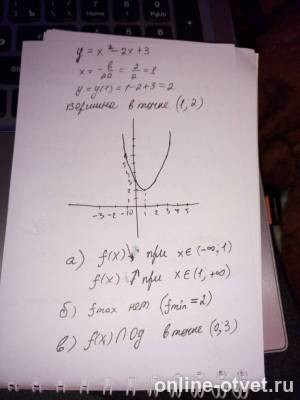 y = x² - 2x + 3
x = -b/2a = 2/2 = 1
y = y(1) = 1 - 2 + 3 = 2
Вершина в точке (1, 2)
5
4
3
2
1
-3 -2 -1 0 1 2 3 4 5
а) f(x) ↓ при x∈(-∞; 1)
f(x) ↑ при x∈(1, +∞)
б) fmax нет (fmin = 2)
в) f(x) ∩ Оу в точке (0, 3)
online-otvet.ru